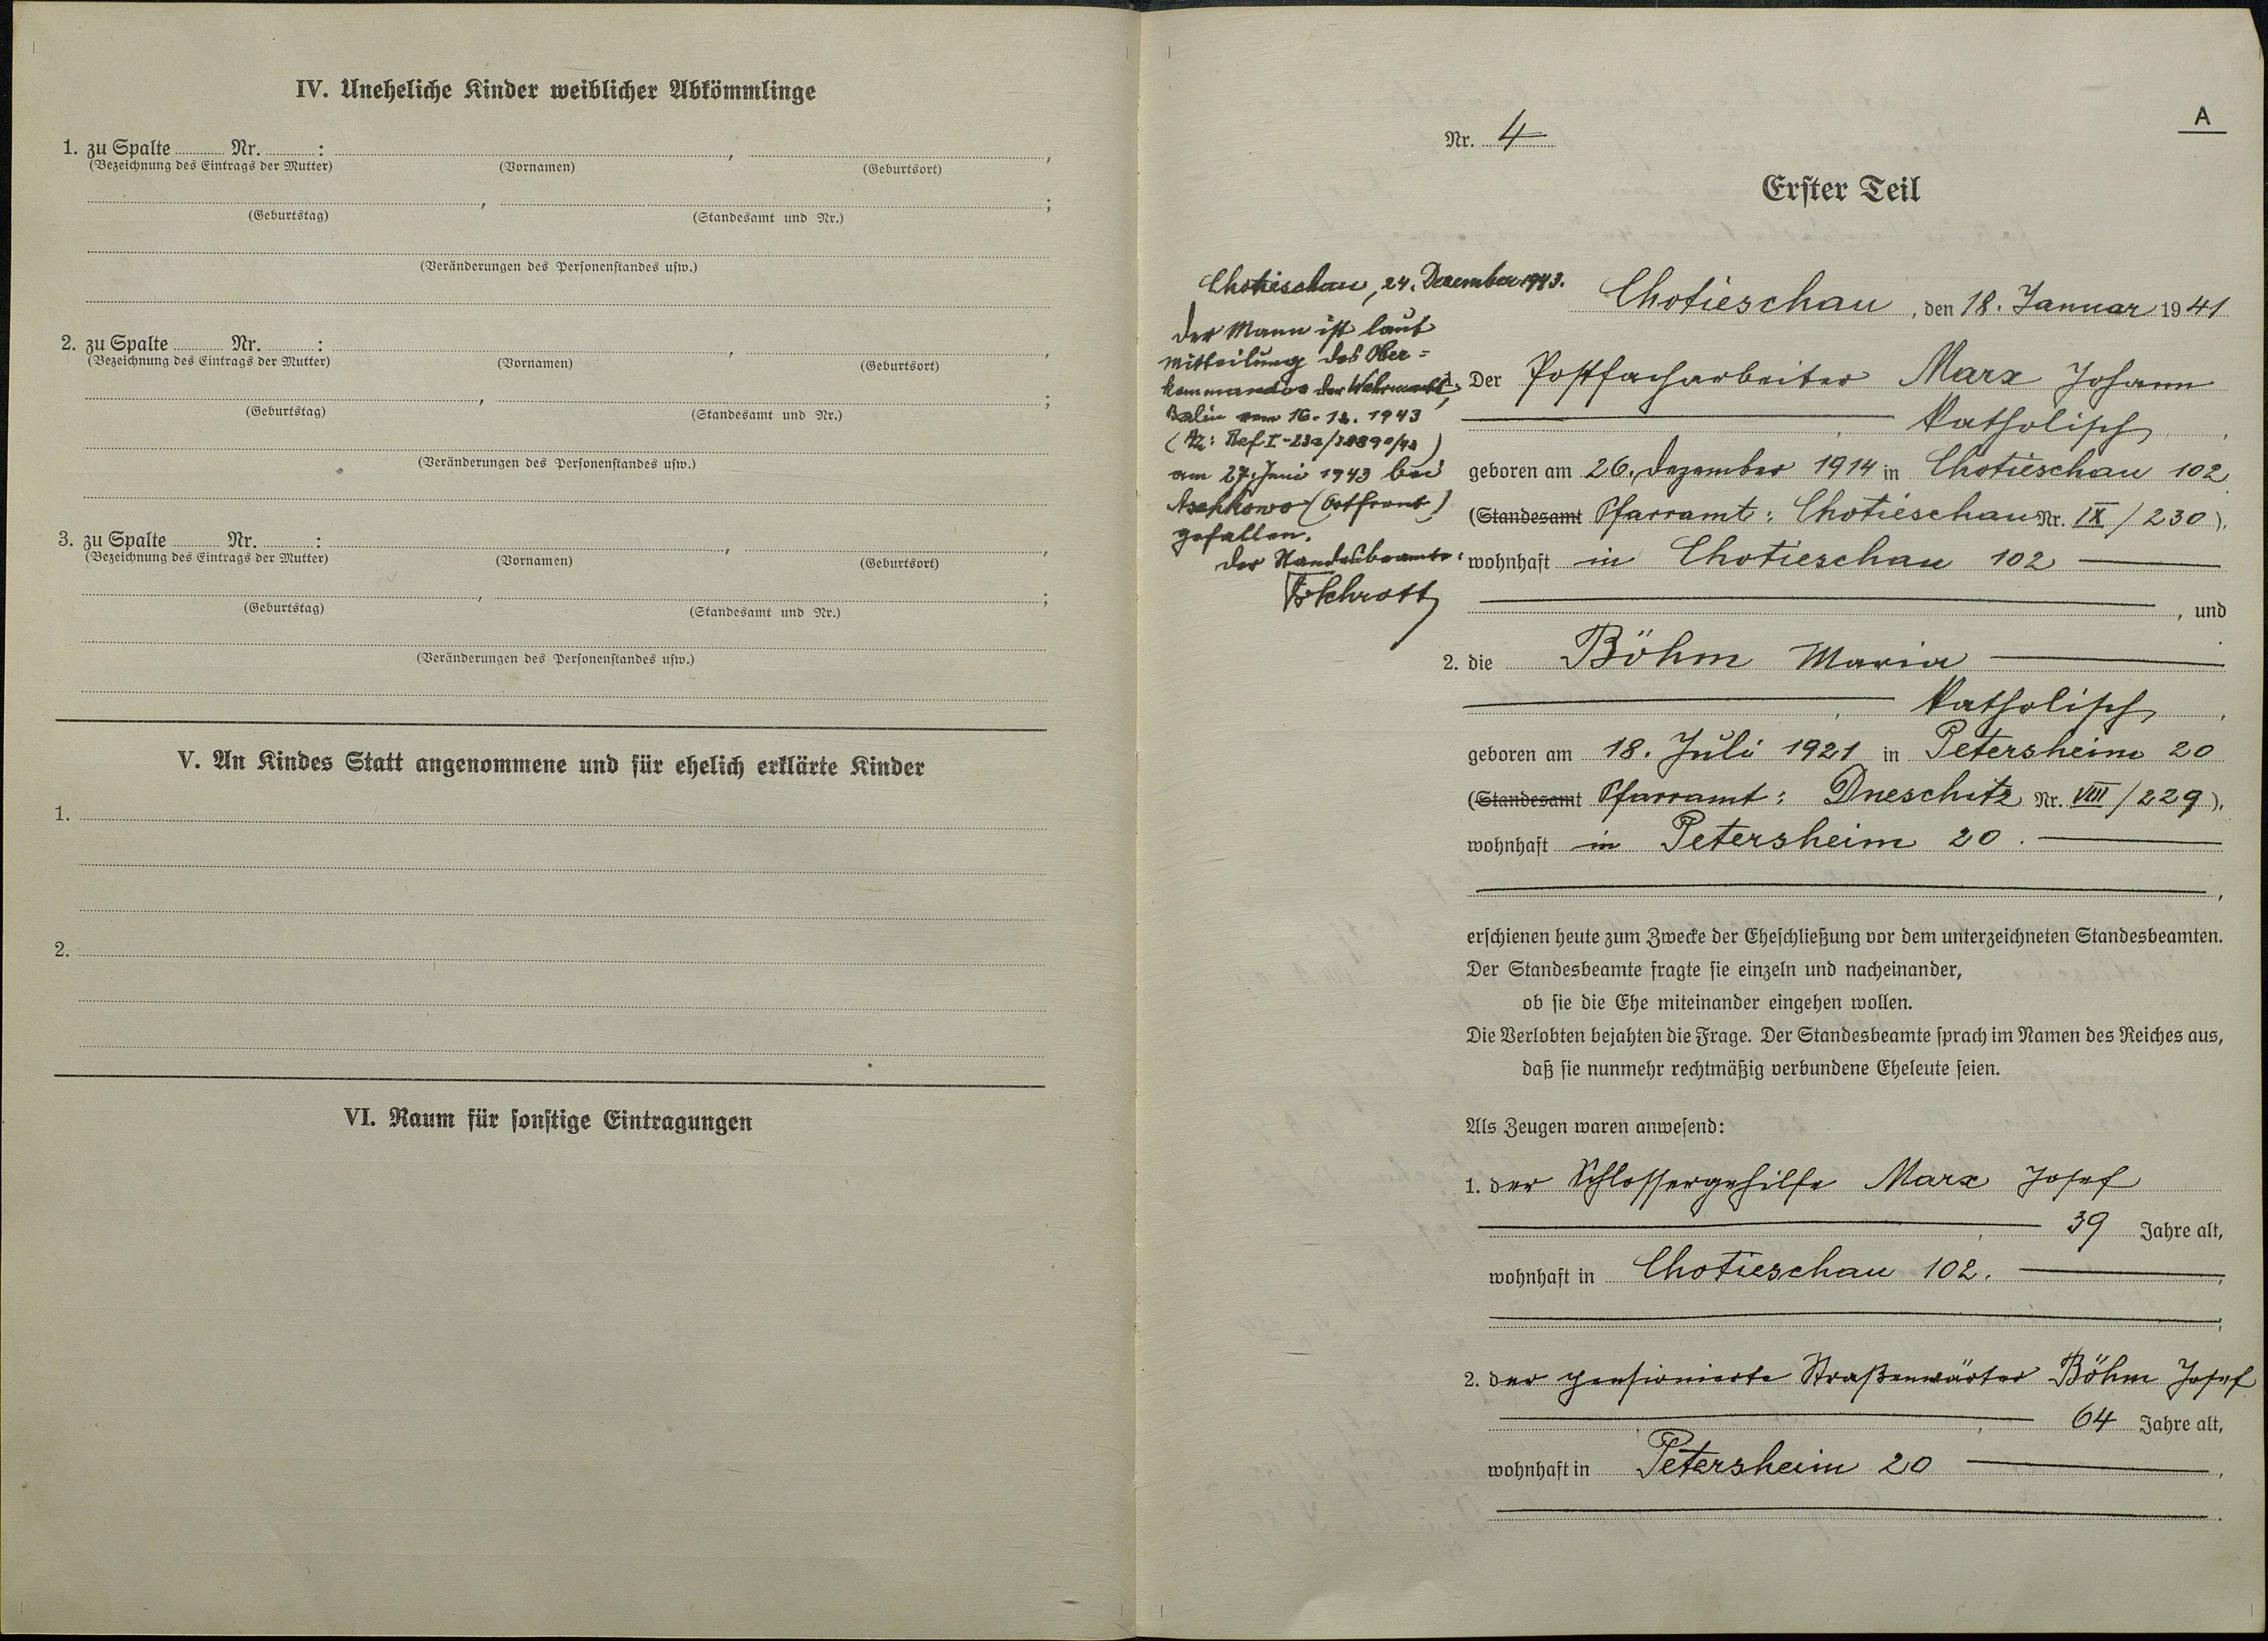 IV. Uneheliche Kinder weiblicher Abkömmlinge
1. zu Spalte Nr. : , ,
(Bezeichnung des Eintrags der Mutter) (Vornamen) (Geburtsort)
, ;
(Geburtstag) (Standesamt und Nr.)
(Veränderungen des Personenstandes usw.)
2. zu Spalte Nr. : , ,
(Bezeichnung des Eintrags der Mutter) (Vornamen) (Geburtsort)
, ;
(Geburtstag) (Standesamt und Nr.)
(Veränderungen des Personenstandes usw.)
3. zu Spalte Nr. : , ,
(Bezeichnung des Eintrags der Mutter) (Vornamen) (Geburtsort)
, ;
(Geburtstag) (Standesamt und Nr.)
(Veränderungen des Personenstandes usw.)
V. An Kindes Statt angenommene und für ehelich erklärte Kinder
1.
2.
VI. Raum für sonstige Eintragungen
A
Nr. 4
Erster Teil
Chotieschau, 24. Dezember 1943.
Der Mann ist laut
Mitteilung des Ober=
kommandos der Wehrmacht,
Berlin vom 16.12.1943
(Az: Ref. I
am 27. Juni 1943 bei
(Ostfront)
gefallen.
Der Standesbeamte:
Schrott
Chotieschau, den 18. Januar 1941
1. Der Postfacharbeiter Marx Johann
, katholisch,
geboren am 26. Dezember 1914 in Chotieschau 102
(Standesamt Pfarramt: Chotieschau Nr. IX/230),
wohnhaft in Chotieschau 102
, und
2. die Böhm Maria
, katholisch,
geboren am 18. Juli 1921 in Petersheim 20
(Standesamt Pfarramt: Dneschitz Nr. VIII/229),
wohnhaft in Petersheim 20.
,
erschienen heute zum Zwecke der Eheschließung vor dem unterzeichneten Standesbeamten.
Der Standesbeamte fragte sie einzeln und nacheinander,
ob sie die Ehe miteinander eingehen wollen.
Die Verlobten bejahten die Frage. Der Standesbeamte sprach im Namen des Reiches aus,
daß sie nunmehr rechtmäßig verbundene Eheleute seien.
Als Zeugen waren anwesend:
1. der Schlossergehilfe Marx Josef
, 39 Jahre alt,
wohnhaft in Chotieschau 102.
;
2. der pensionierte Straßenwärter Böhm Josef
, 64 Jahre alt,
wohnhaft in Petersheim 20,
.